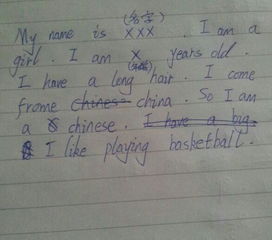 (名字)
My name is XXX . I am a
girl . I am X years old .
I have a long hair . I come
frome china . So I am
a chinese . I have a big
I like playing basketball .